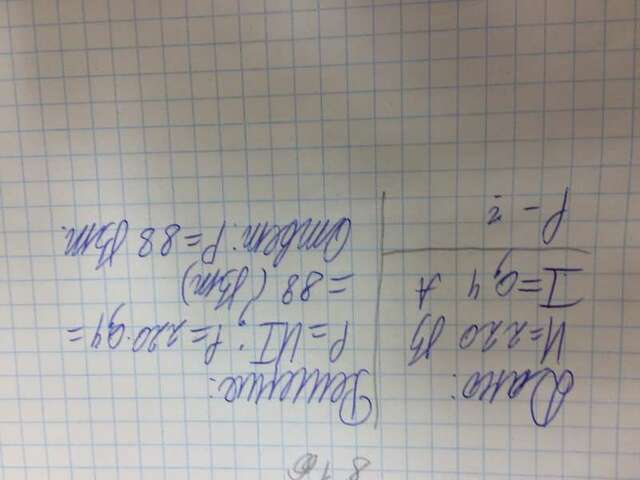 Дано:
U=220 В
I=0,4 А
P - ?
Решение:
P=UI; P=220·0,4=
=88 (Вт)
Ответ: P=88 Вт.